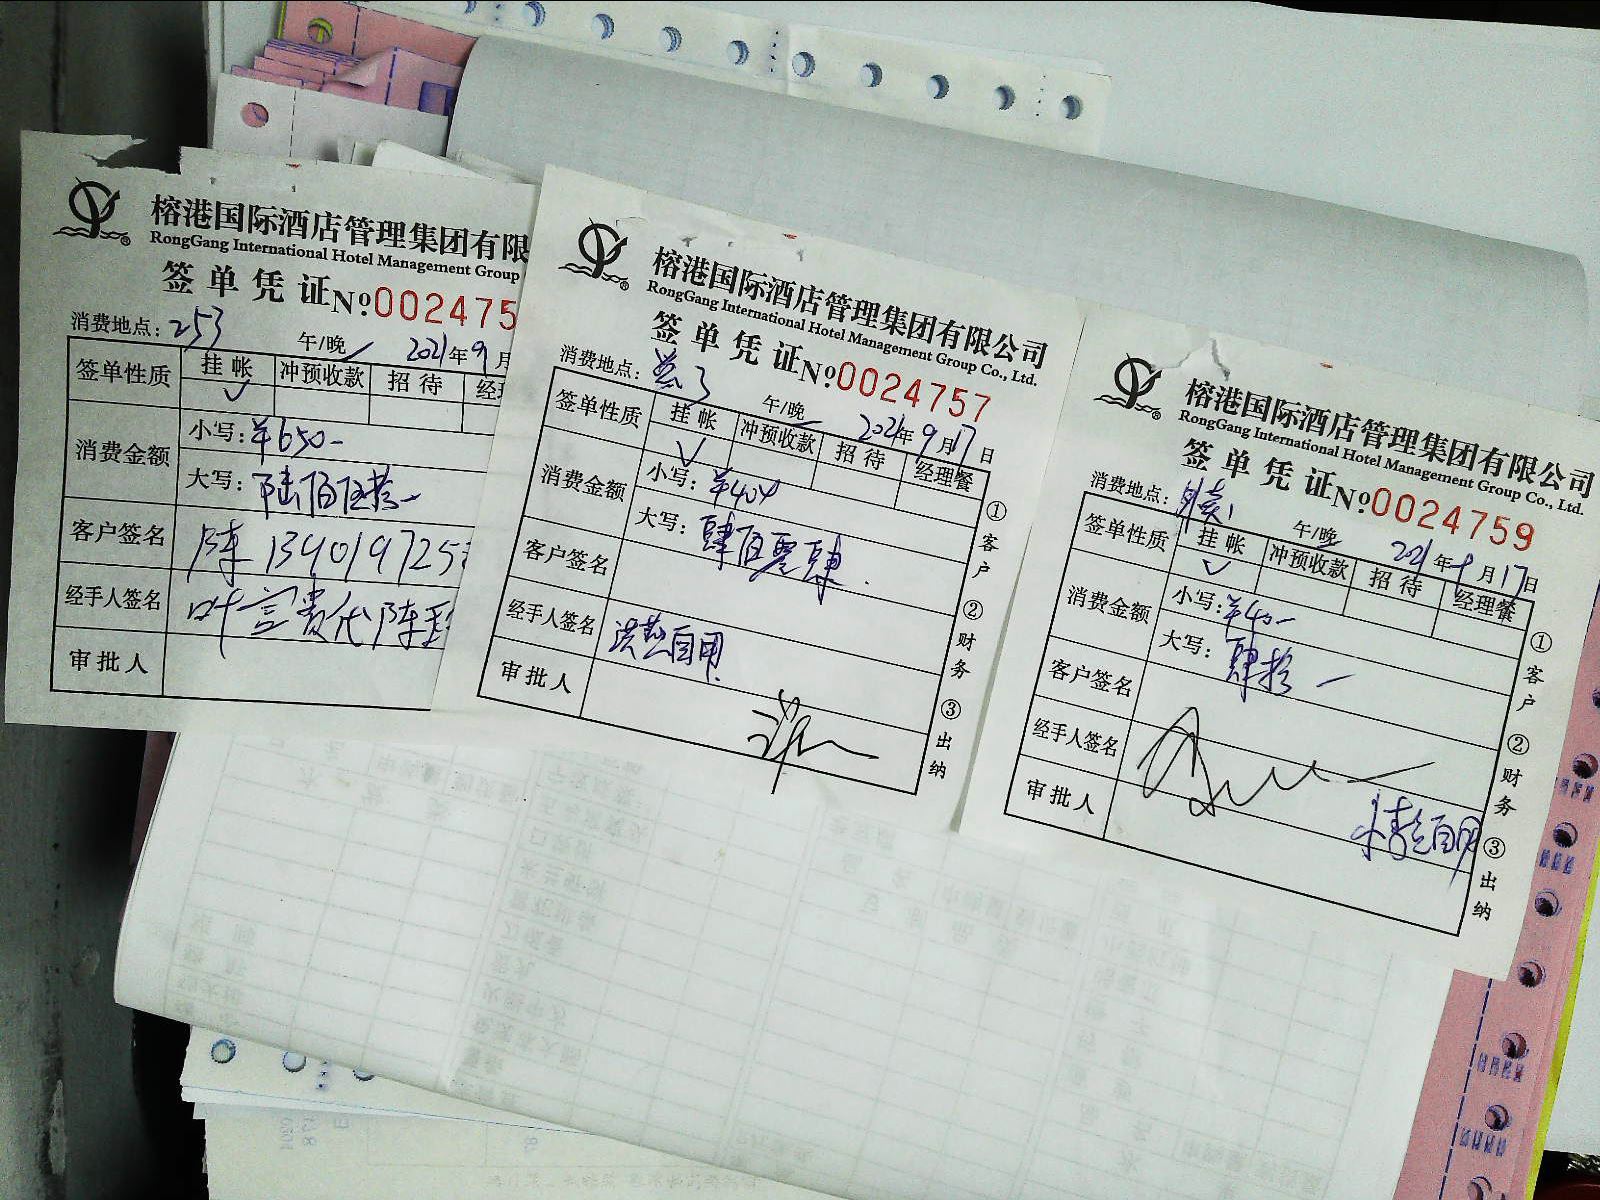 榕港国际酒店管理集团有限
RongGang International Hotel Management Group
签单凭证 №002475
消费地点：253 午/晚 2021年9月
签单性质 挂帐 冲预收款 招待 经
✓
消费金额 小写：¥650-
大写：陆佰伍拾-
客户签名 陈 1390197253
经手人签名 叶言贵代陈
审批人
榕港国际酒店管理集团有限公司
RongGang International Hotel Management Group Co., Ltd.
签单凭证 №0024757
消费地点： 午/晚 2021年9月17日
签单性质 挂帐 冲预收款 招待 经理餐
✓
消费金额 小写：¥404
大写：肆佰零肆
客户签名
经手人签名 洪燕自用
审批人
①客户 ②财务 ③出纳
榕港国际酒店管理集团有限公司
RongGang International Hotel Management Group Co., Ltd.
签单凭证 №0024759
消费地点：外卖1 午/晚 2021年9月17日
签单性质 挂帐 冲预收款 招待 经理餐
✓
消费金额 小写：¥40-
大写：肆拾-
客户签名
经手人签名
自用
审批人
①客户 ②财务 ③出纳